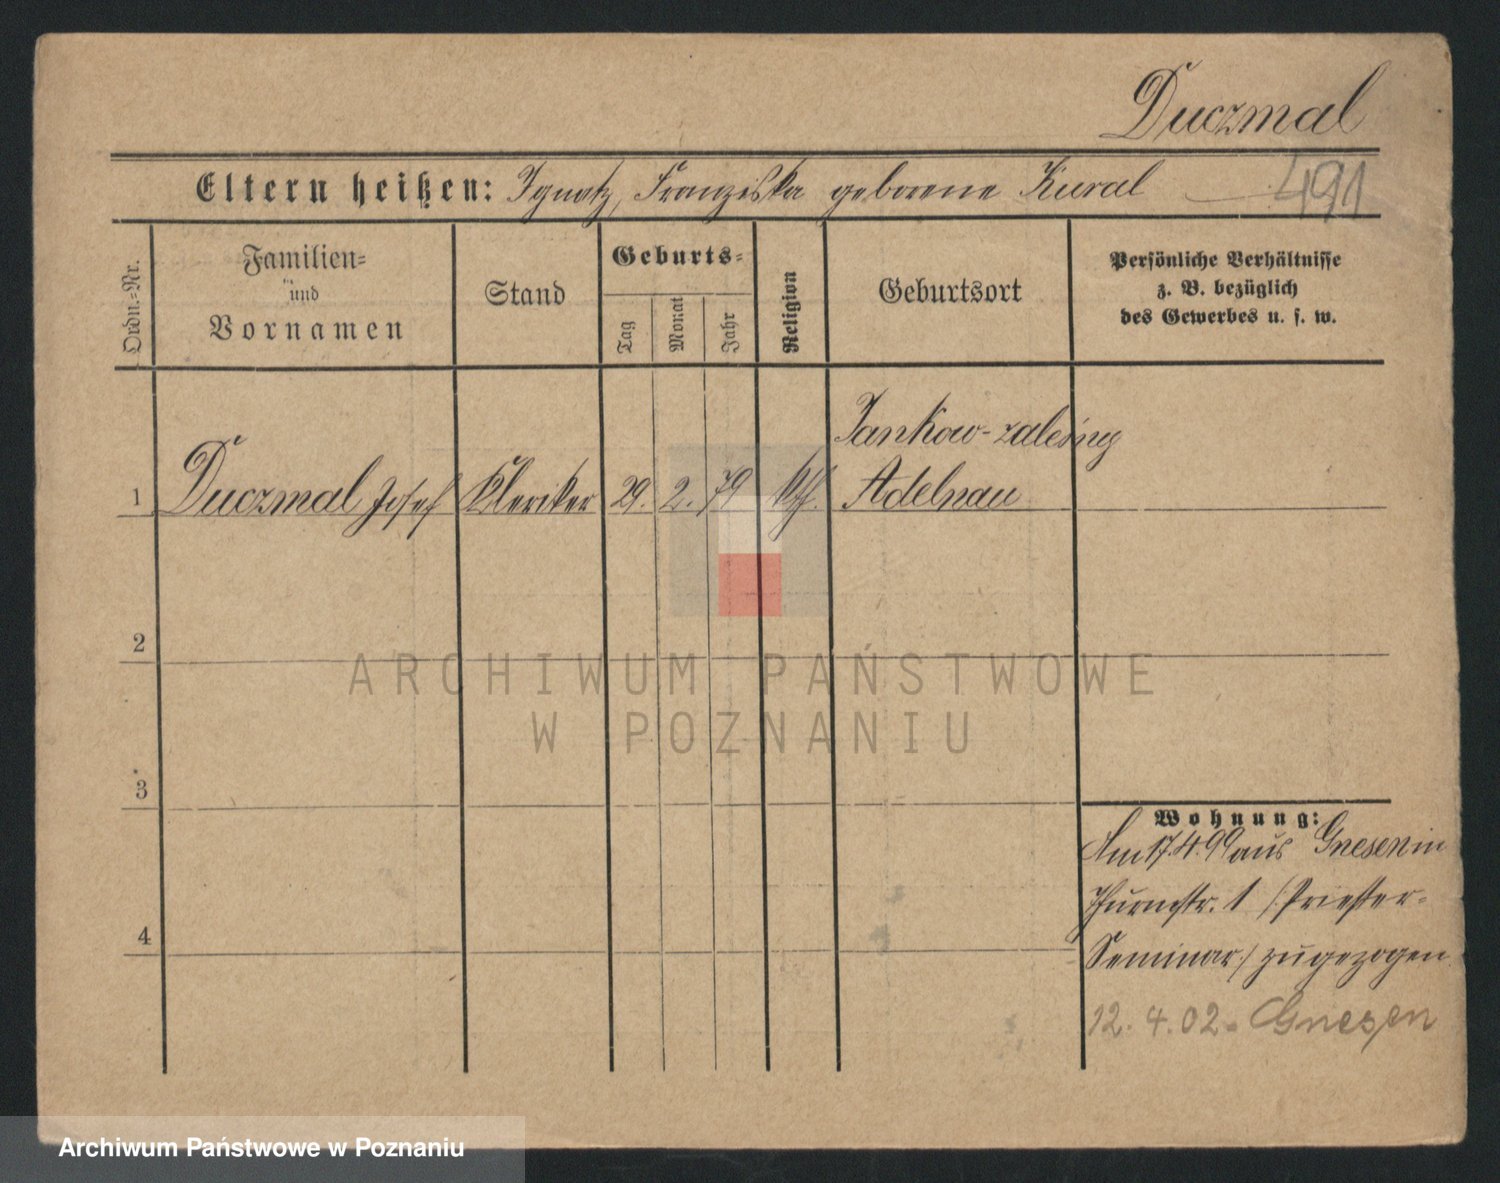 Duczmal
Eltern heißen: Ignatz, Franziska geborene Kural
491
Ordn.-Nr.
Familien-
und
Vornamen
Stand
Geburts-
Tag
Monat
Jahr
Religion
Geburtsort
Persönliche Verhältnisse
z. B. bezüglich
des Gewerbes u. s. w.
1 Duczmal Josef Kleriker 29. 2. 79 kth.
Jankow-zalesny
Adelnau
2
3
4
Wohnung:
Am 17.4.99 aus Gnesen in
Thurmstr. 1 /:Priester-
Seminar:/ zugezogen
12. 4. 02. Gnesen
ARCHIWUM PAŃSTWOWE
W POZNANIU
Archiwum Państwowe w Poznaniu